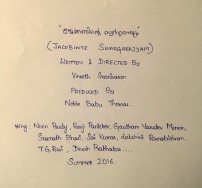 "ജേക്കബിന്റെ സ്വർഗ്ഗരാജ്യം"
(JACOBINTE SWARGARAJYAM)
WRITTEN & DIRECTED BY
Vineeth Sreenivasan
PRODUCED BY
Noble Babu Thomas
Nivin Pauly, Renji Panicker, Gautham Vasudev Menon,
Sreenath Bhasi, Sai Kumar, Lakshmi Ramakrishnan,
T.G.Ravi, Dinesh Prabhakar ...
SUMMER 2016.